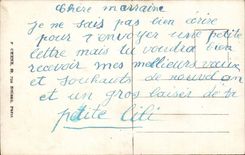 Chère marraine
je ne sais pas bien écrire
pour t'envoyer une petite
lettre mais tu voudra bien
recevoir mes meilleurs vœux
et souhaits de nouvel an
et un gros baiser de ta
petite Lili